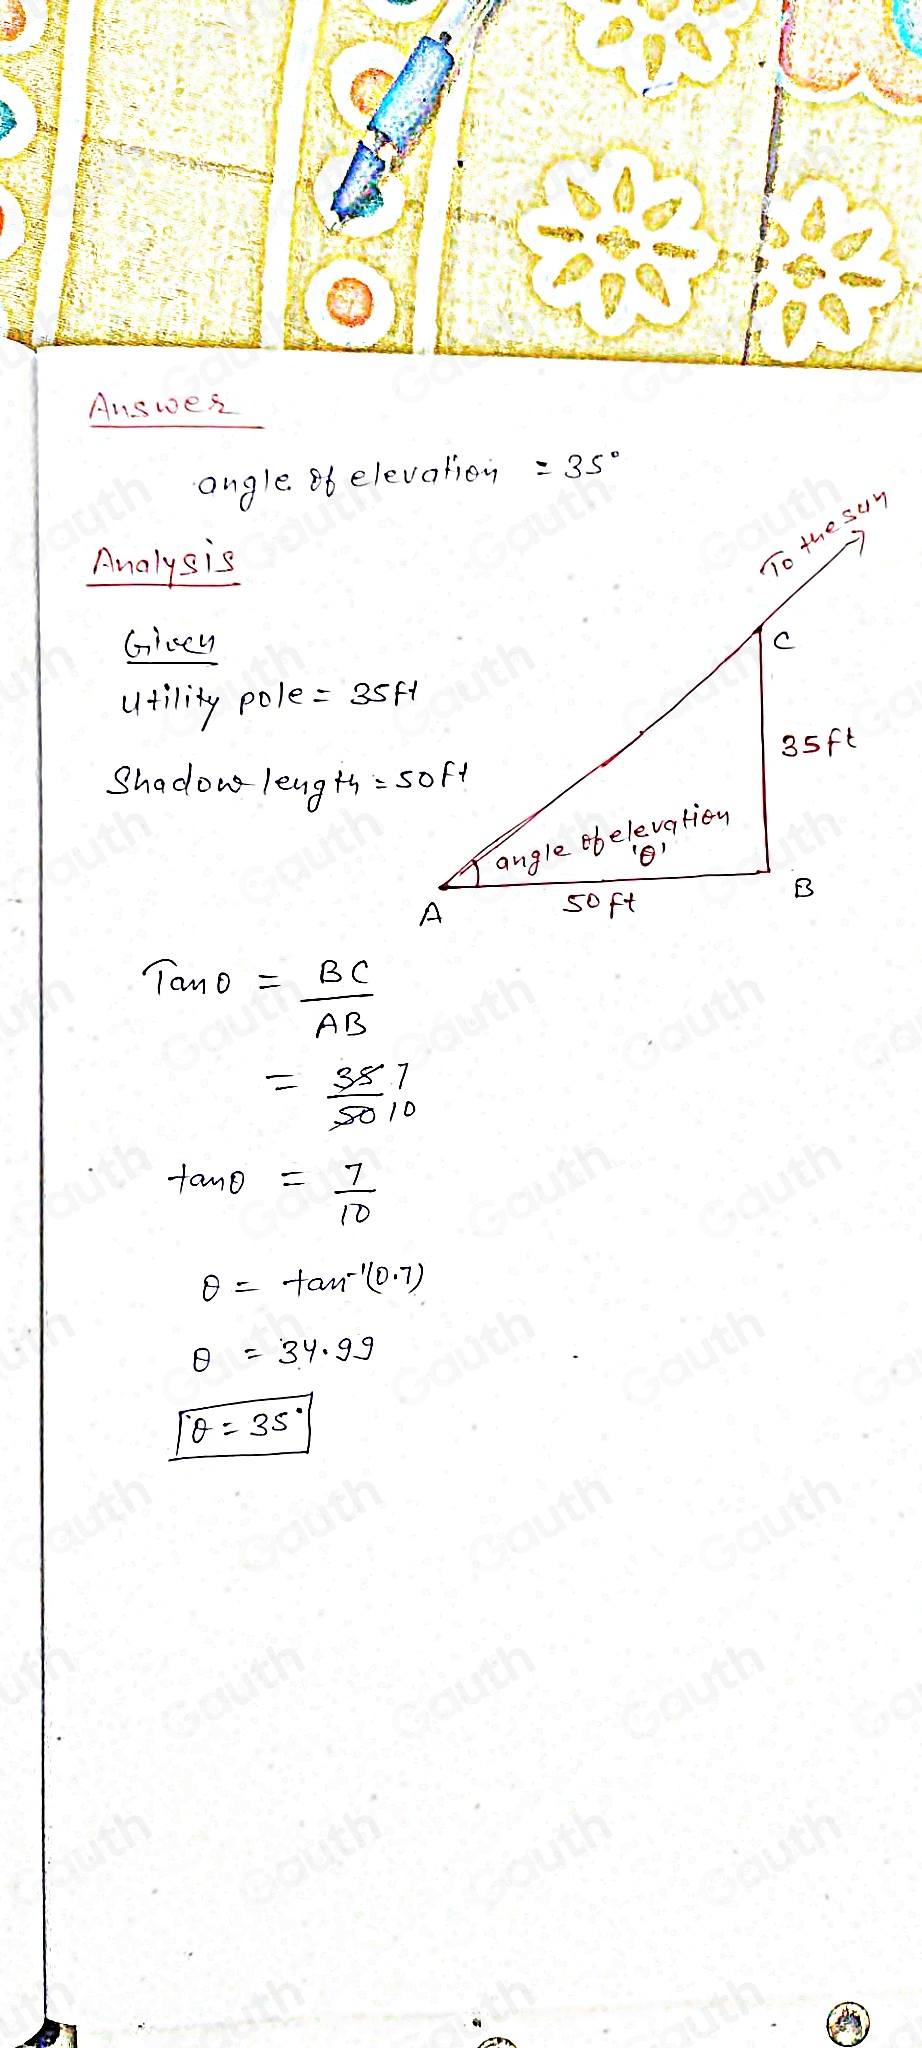 Answer
angle of elevation = 35°
To the sun
Analysis
Given
C
Utility pole = 35ft
35ft
Shadow length = 50ft
angle of elevation
'θ'
A
50 ft
B
Tanθ = BC
AB
= 35 7
50 10
tanθ = 7
10
θ = tan⁻¹(0.7)
θ = 34.99
θ = 35°
Gauth